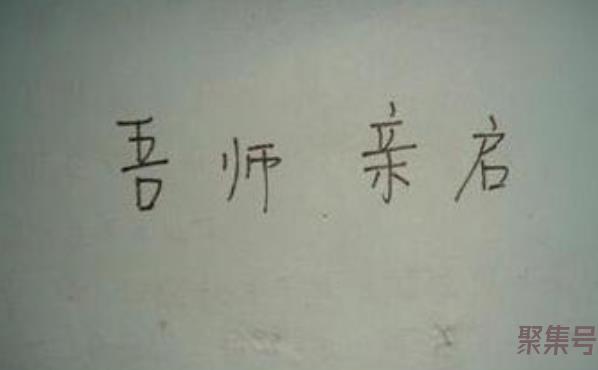 吾师亲启
聚集号